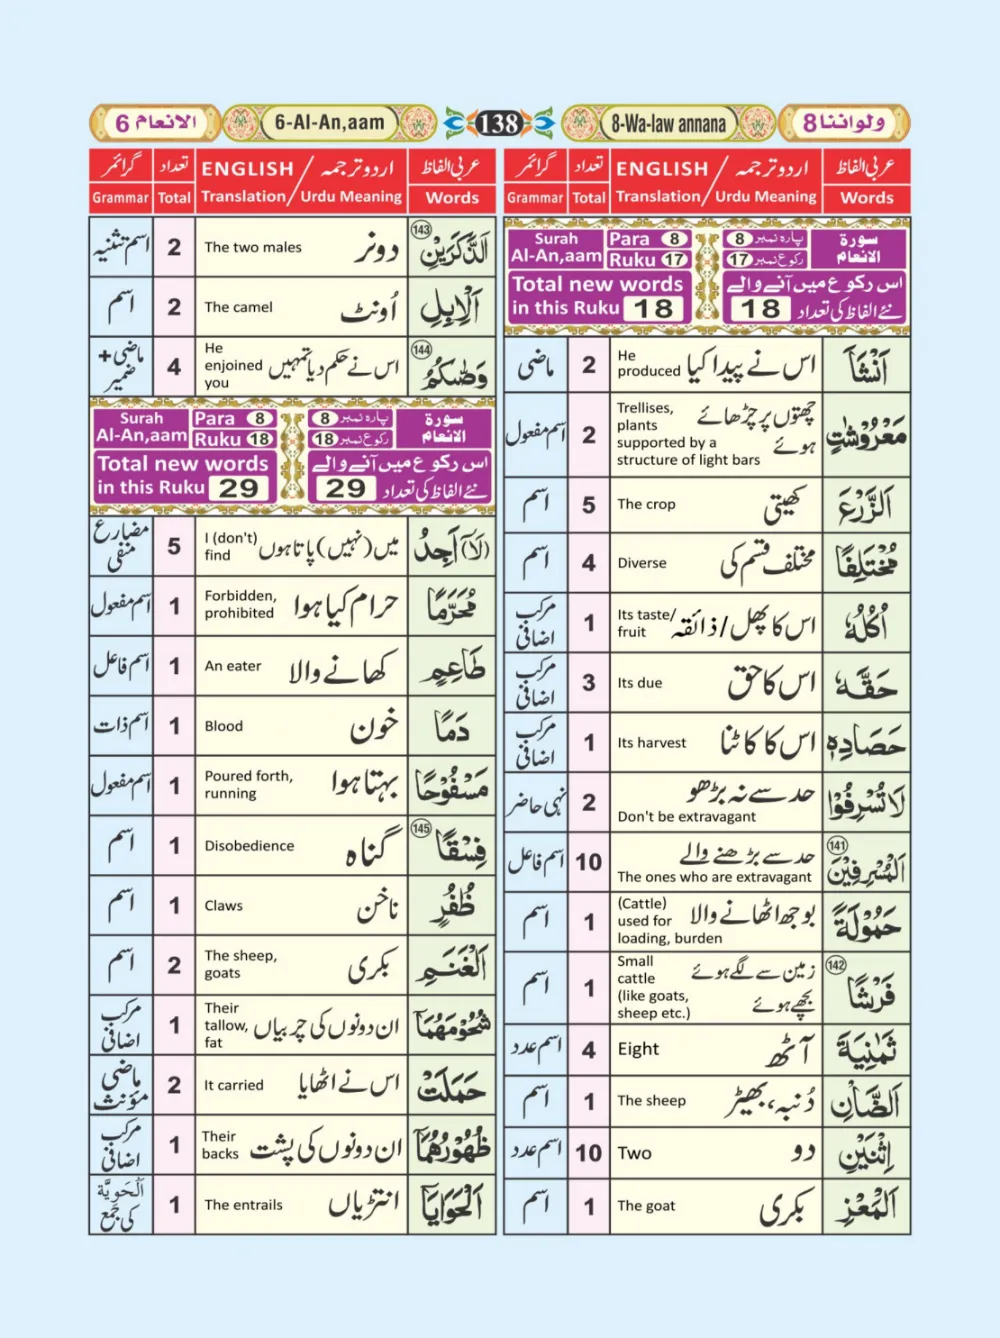 الانعام 6
6-Al-An,aam
138
8-Wa-law annana
ولواننا 8
گرائمر تعداد ENGLISH / اردو ترجمہ عربی الفاظ
Grammar Total Translation/ Urdu Meaning Words
Surah Al-An,aam Para 8 پارہ نمبر 8 سورۃ الانعام
Ruku 17 رکوع نمبر 17
Total new words in this Ruku 18 اس رکوع میں آنے والے نئے الفاظ کی تعداد 18
ماضی 2 He produced اس نے پیدا کیا اَنْشَاَ
اسم مفعول 2 Trellises, plants supported by a structure of light bars چھتوں پر چڑھائے ہوئے مَعْرُوْشٰتٍ
اسم 5 The crop کھیتی اَلزَّرْعَ
اسم 4 Diverse مختلف قسم کی مُخْتَلِفًا
مرکب اضافی 1 Its taste/ fruit اس کا پھل/ذائقہ اُكُلُهٗ
مرکب اضافی 3 Its due اس کا حق حَقَّهٗ
مرکب اضافی 1 Its harvest اس کا کاٹنا حَصَادِهٖ
نہی حاضر 2 حد سے نہ بڑھو Don't be extravagant لَا تُسْرِفُوْا
اسم فاعل 10 حد سے بڑھنے والے The ones who are extravagant اَلْمُسْرِفِيْنَ 141
اسم 1 (Cattle) used for loading, burden بوجھ اٹھانے والا حَمُوْلَةً
اسم 1 Small cattle (like goats, sheep etc.) زمین سے لگے ہوئے بچھے ہوئے فَرْشًا 142
اسم عدد 4 Eight آٹھ ثَمٰنِيَةَ
اسم 1 The sheep دُنبہ، بھیڑ اَلضَّاْنِ
اسم عدد 10 Two دو اِثْنَيْنِ
اسم 1 The goat بکری اَلْمَعْزِ
گرائمر تعداد ENGLISH / اردو ترجمہ عربی الفاظ
Grammar Total Translation/ Urdu Meaning Words
اسم تثنیہ 2 The two males دو نر اَلذَّكَرَيْنِ 143
اسم 2 The camel اُونٹ اَلْاِبِلِ
ماضی + ضمیر 4 He enjoined you اس نے حکم دیا تمہیں وَصّٰىكُمُ 144
Surah Al-An,aam Para 8 پارہ نمبر 8 سورۃ الانعام
Ruku 18 رکوع نمبر 18
Total new words in this Ruku 29 اس رکوع میں آنے والے نئے الفاظ کی تعداد 29
مضارع منفی 5 I (don't) find میں (نہیں) پاتا ہوں (لَاۤ) اَجِدُ
اسم مفعول 1 Forbidden, prohibited حرام کیا ہوا مُحَرَّمًا
اسم فاعل 1 An eater کھانے والا طَاعِمٍ
اسم ذات 1 Blood خون دَمًا
اسم مفعول 1 Poured forth, running بہتا ہوا مَسْفُوْحًا
اسم 1 Disobedience گناہ فِسْقًا 145
اسم 1 Claws ناخن ظُفُرٍ
اسم 2 The sheep, goats بکری اَلْغَنَمِ
مرکب اضافی 1 Their tallow, fat ان دونوں کی چربیاں شُحُوْمَهُمَاۤ
ماضی مؤنث 2 It carried اس نے اٹھایا حَمَلَتْ
مرکب اضافی 1 Their backs ان دونوں کی پشت ظُهُوْرُهُمَاۤ
اَلْحَوِيَّة کی جمع 1 The entrails انتڑیاں اَلْحَوَايَاۤ